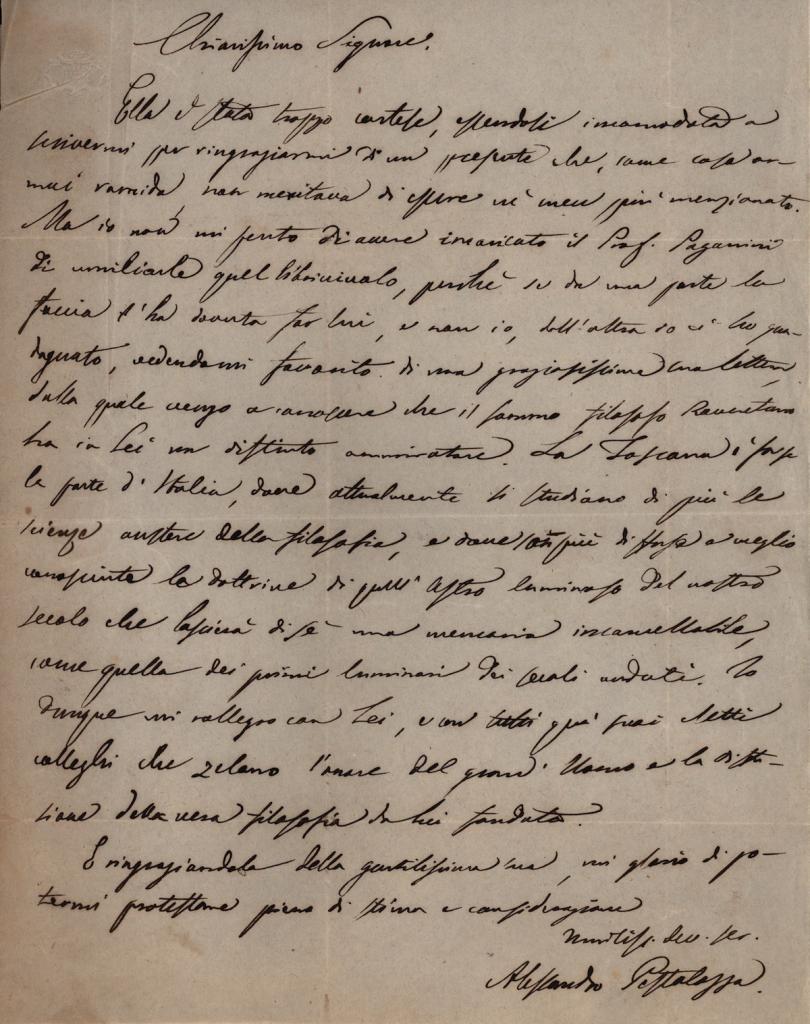 Chiarissimo Signore.
Ella è stata troppo cortese, essendosi incomodata a
scrivermi per ringraziarmi di un presente che, come cosa or-
mai rancida, non meritava di essere nè men più menzionato.
Ma io non mi pento di avere incaricato il Prof. Paganini
di umiliarle quel libricciuolo, perchè se da una parte la
faccia l'ha dovuta far lui, e non io, dall'altra io ci ho gua-
dagnato, vedendomi favorito di una graziosissima sua lettera,
dalla quale vengo a conoscere che il sommo filosofo Roveretano
ha in Lei un distinto ammiratore. La Toscana è forse
la parte d'Italia, dove attualmente si studiano di più le
scienze austere della filosofia, e dove son più diffuse e meglio
conosciute le dottrine di quell'Astro luminoso del nostro
secolo che lascierà di sè una memoria incancellabile,
come quella dei primi luminari dei secoli andati. Io
dunque mi rallegro con Lei, e con tutti que' suoi eletti
colleghi che zelano l'onore del grand'Uomo e la diffu-
sione della vera filosofia da lui fondata.
E ringraziandola della gentilissima sua, mi glorio di po-
termi protestare pieno di stima e considerazione
Umiliss. dev. ser.
Alessandro Pestalozza.